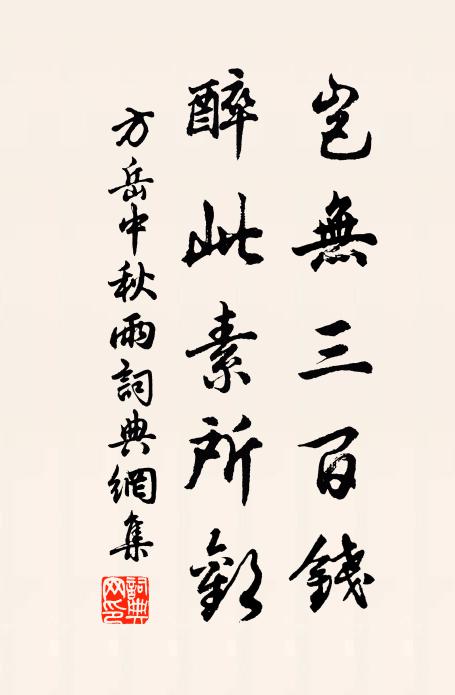 豈無三百錢
醉此素所歡
方岳中秋雨詞典網集
詞典網印